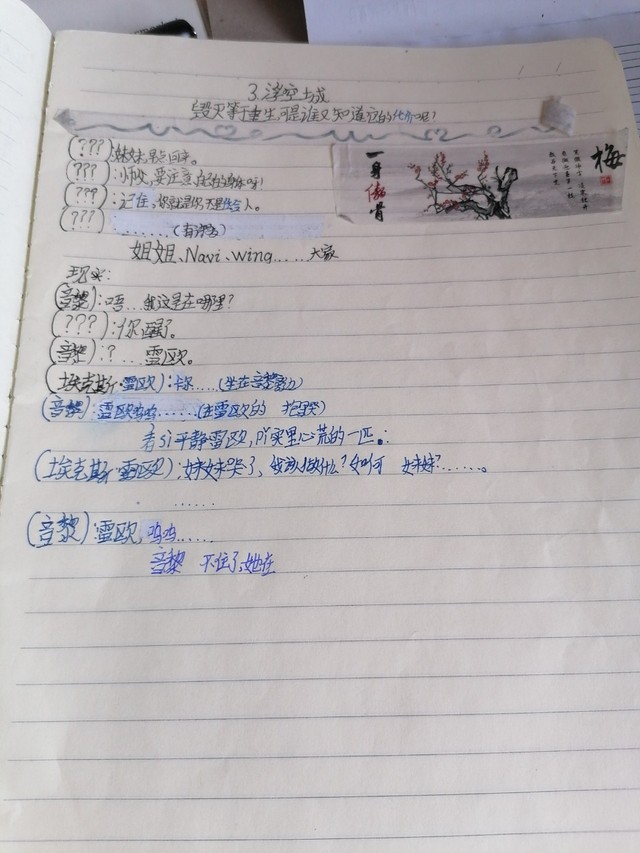 3.浮空城
毁灭等于重生,可是谁又知道它的代价呢?
(???):妹妹,早点回来。
(???):小师妹,要注意自己的身体呀!
(???):记住,你就是你,不是任何人。
(???)
......(有泪)
姐姐、Navi、wing.....大家
现实:
(音黎):唔...我这是在哪里?
(???):你醒了。
(音黎):?...雷欧。
(埃克斯·雷欧):卡尔....(坐在音黎旁边)
(音黎):雷欧呜呜......(在雷欧的 抱哭)
看si平静雷欧,pi实里心荒的一匹。:
(埃克斯·雷欧):妹妹哭了,我该做什么?如何 妹妹?.......。
......
(音黎):雷欧,呜呜.....
音黎 不住了,她在
梅
一身傲骨